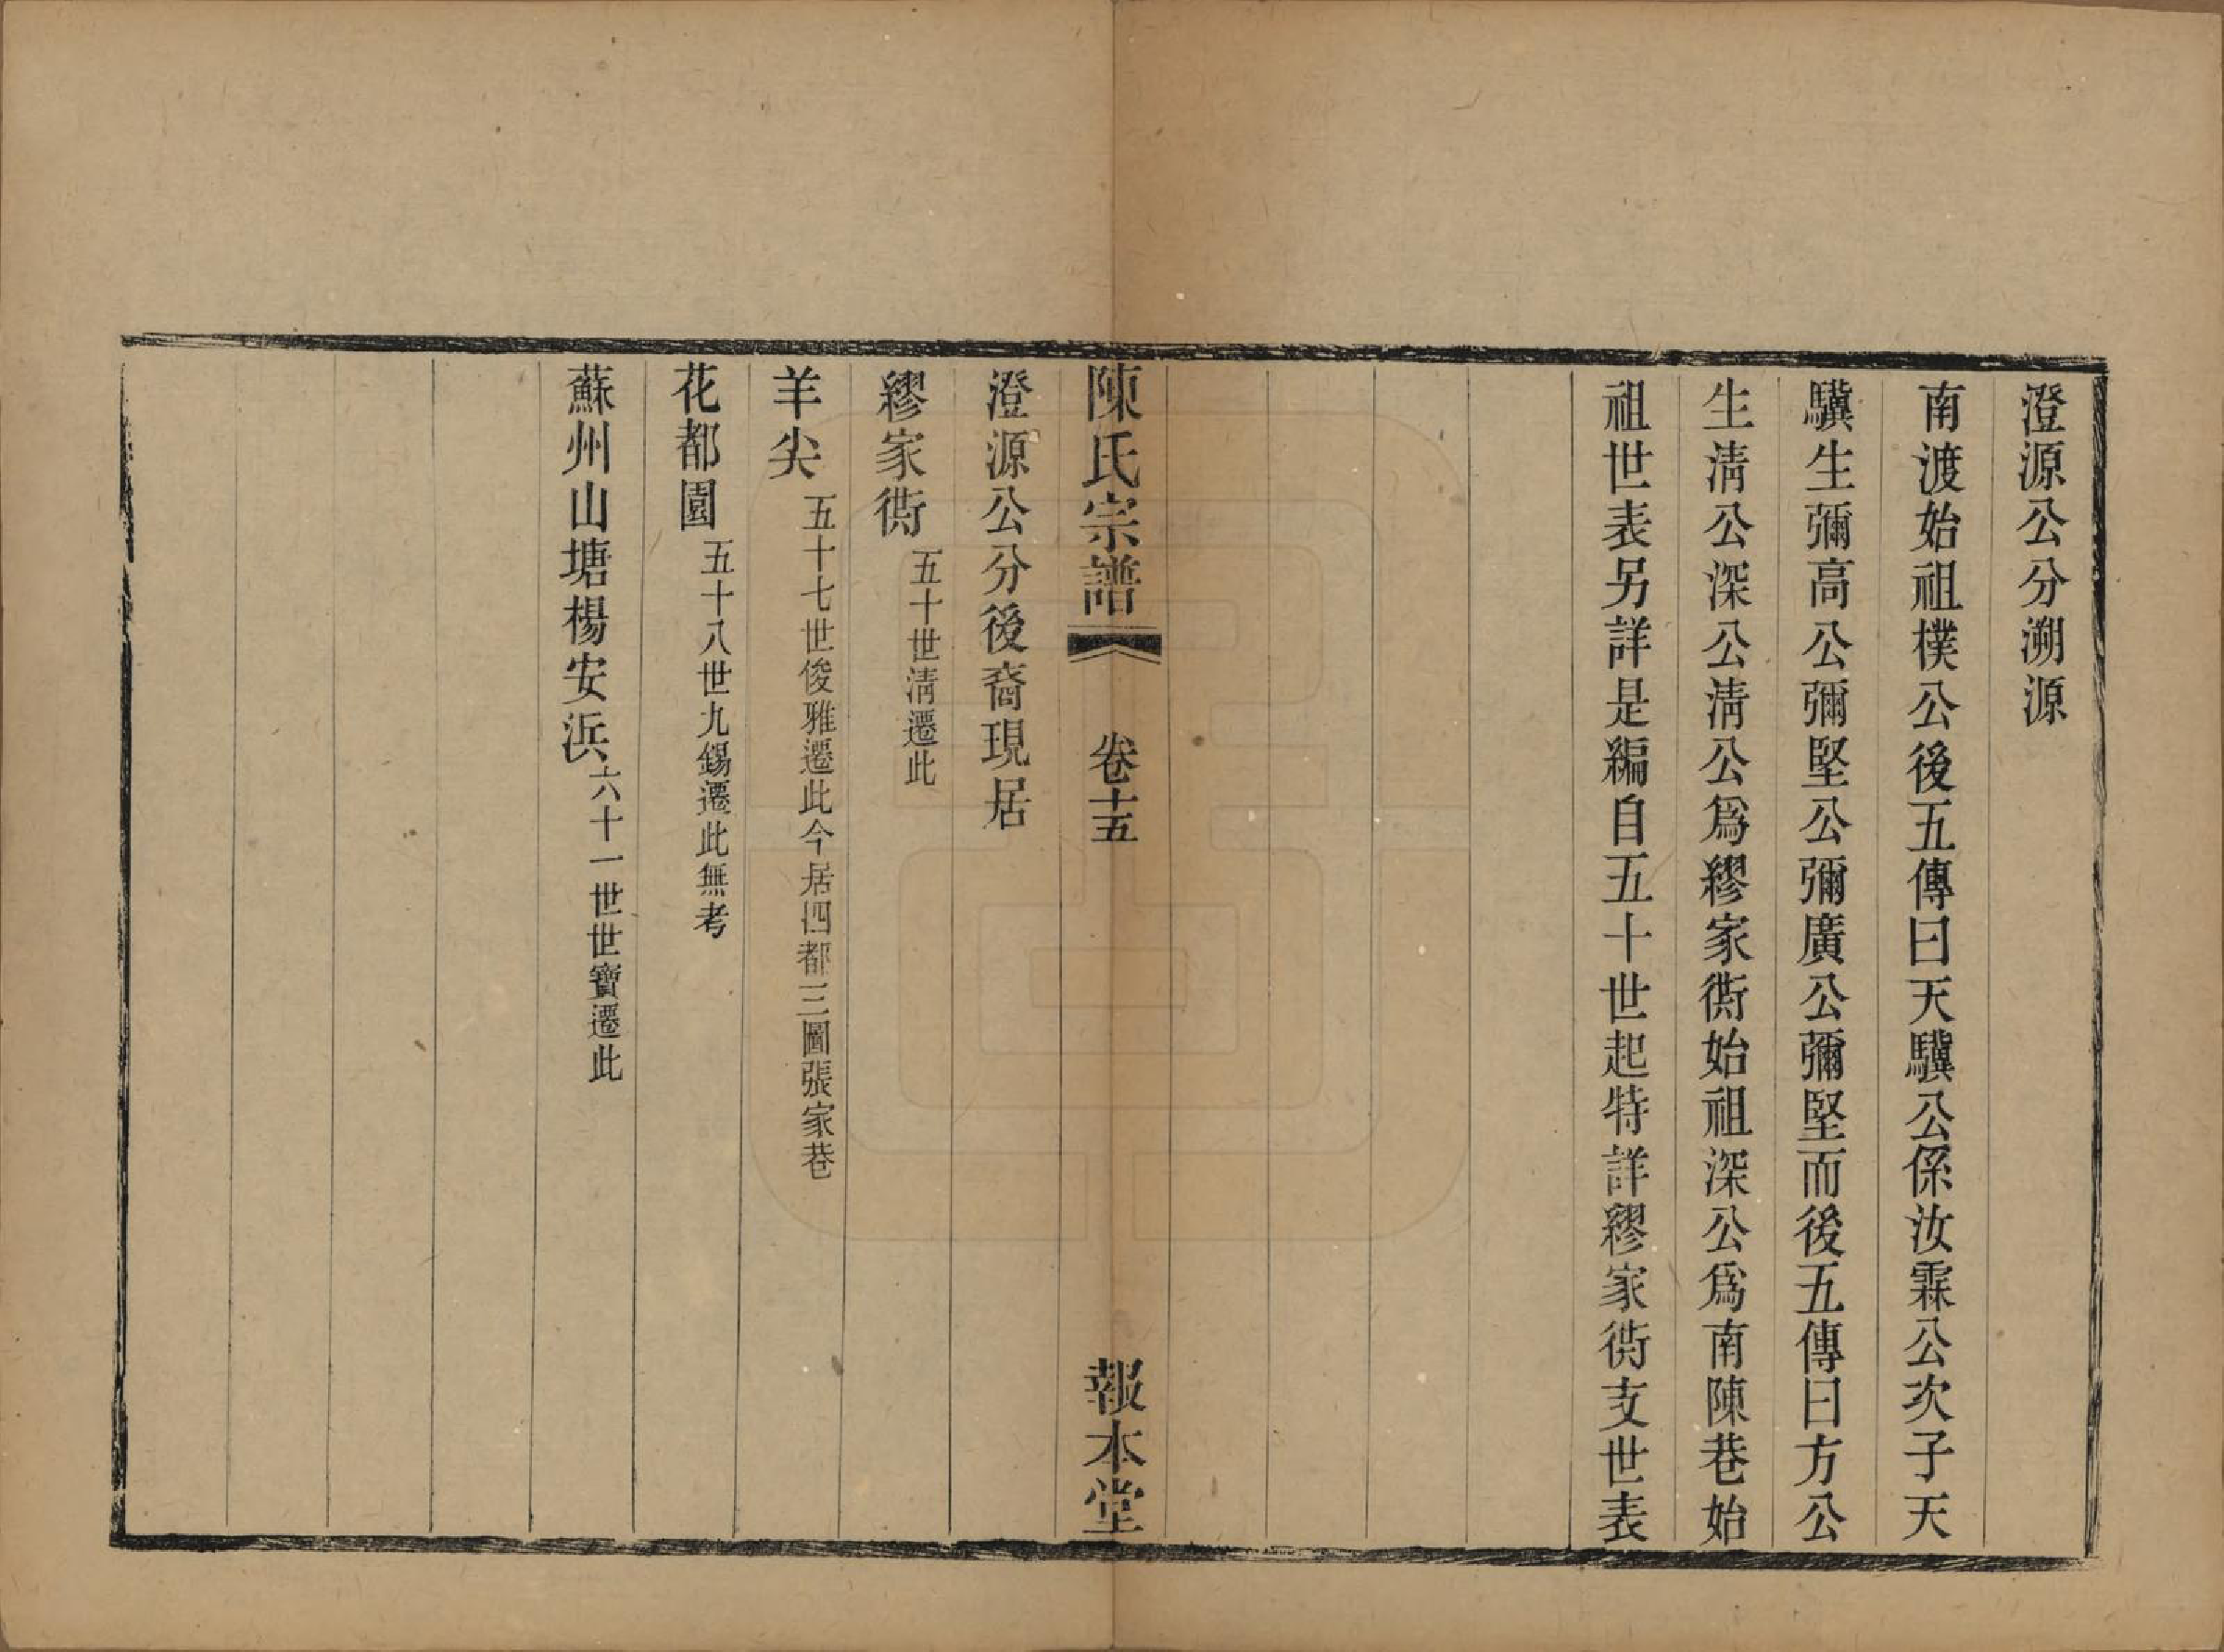 澄源公分溯源
南渡始祖樸公後五傳曰天驥公係汝霖公次子天
驥生彌高公彌堅公彌廣公彌堅而後五傳曰方公
生淸公深公淸公爲繆家衖始祖深公爲南陳巷始
祖世表另詳是編自五十世起特詳繆家衖支世表
陳氏宗譜
卷十五
報本堂
澄源公分後裔現居
繆家衖 五十世淸遷此
羊尖 五十七世俊雅遷此今居四都三圖張家巷
花都園 五十八世九錫遷此無考
蘇州山塘楊安浜 六十一世世寶遷此